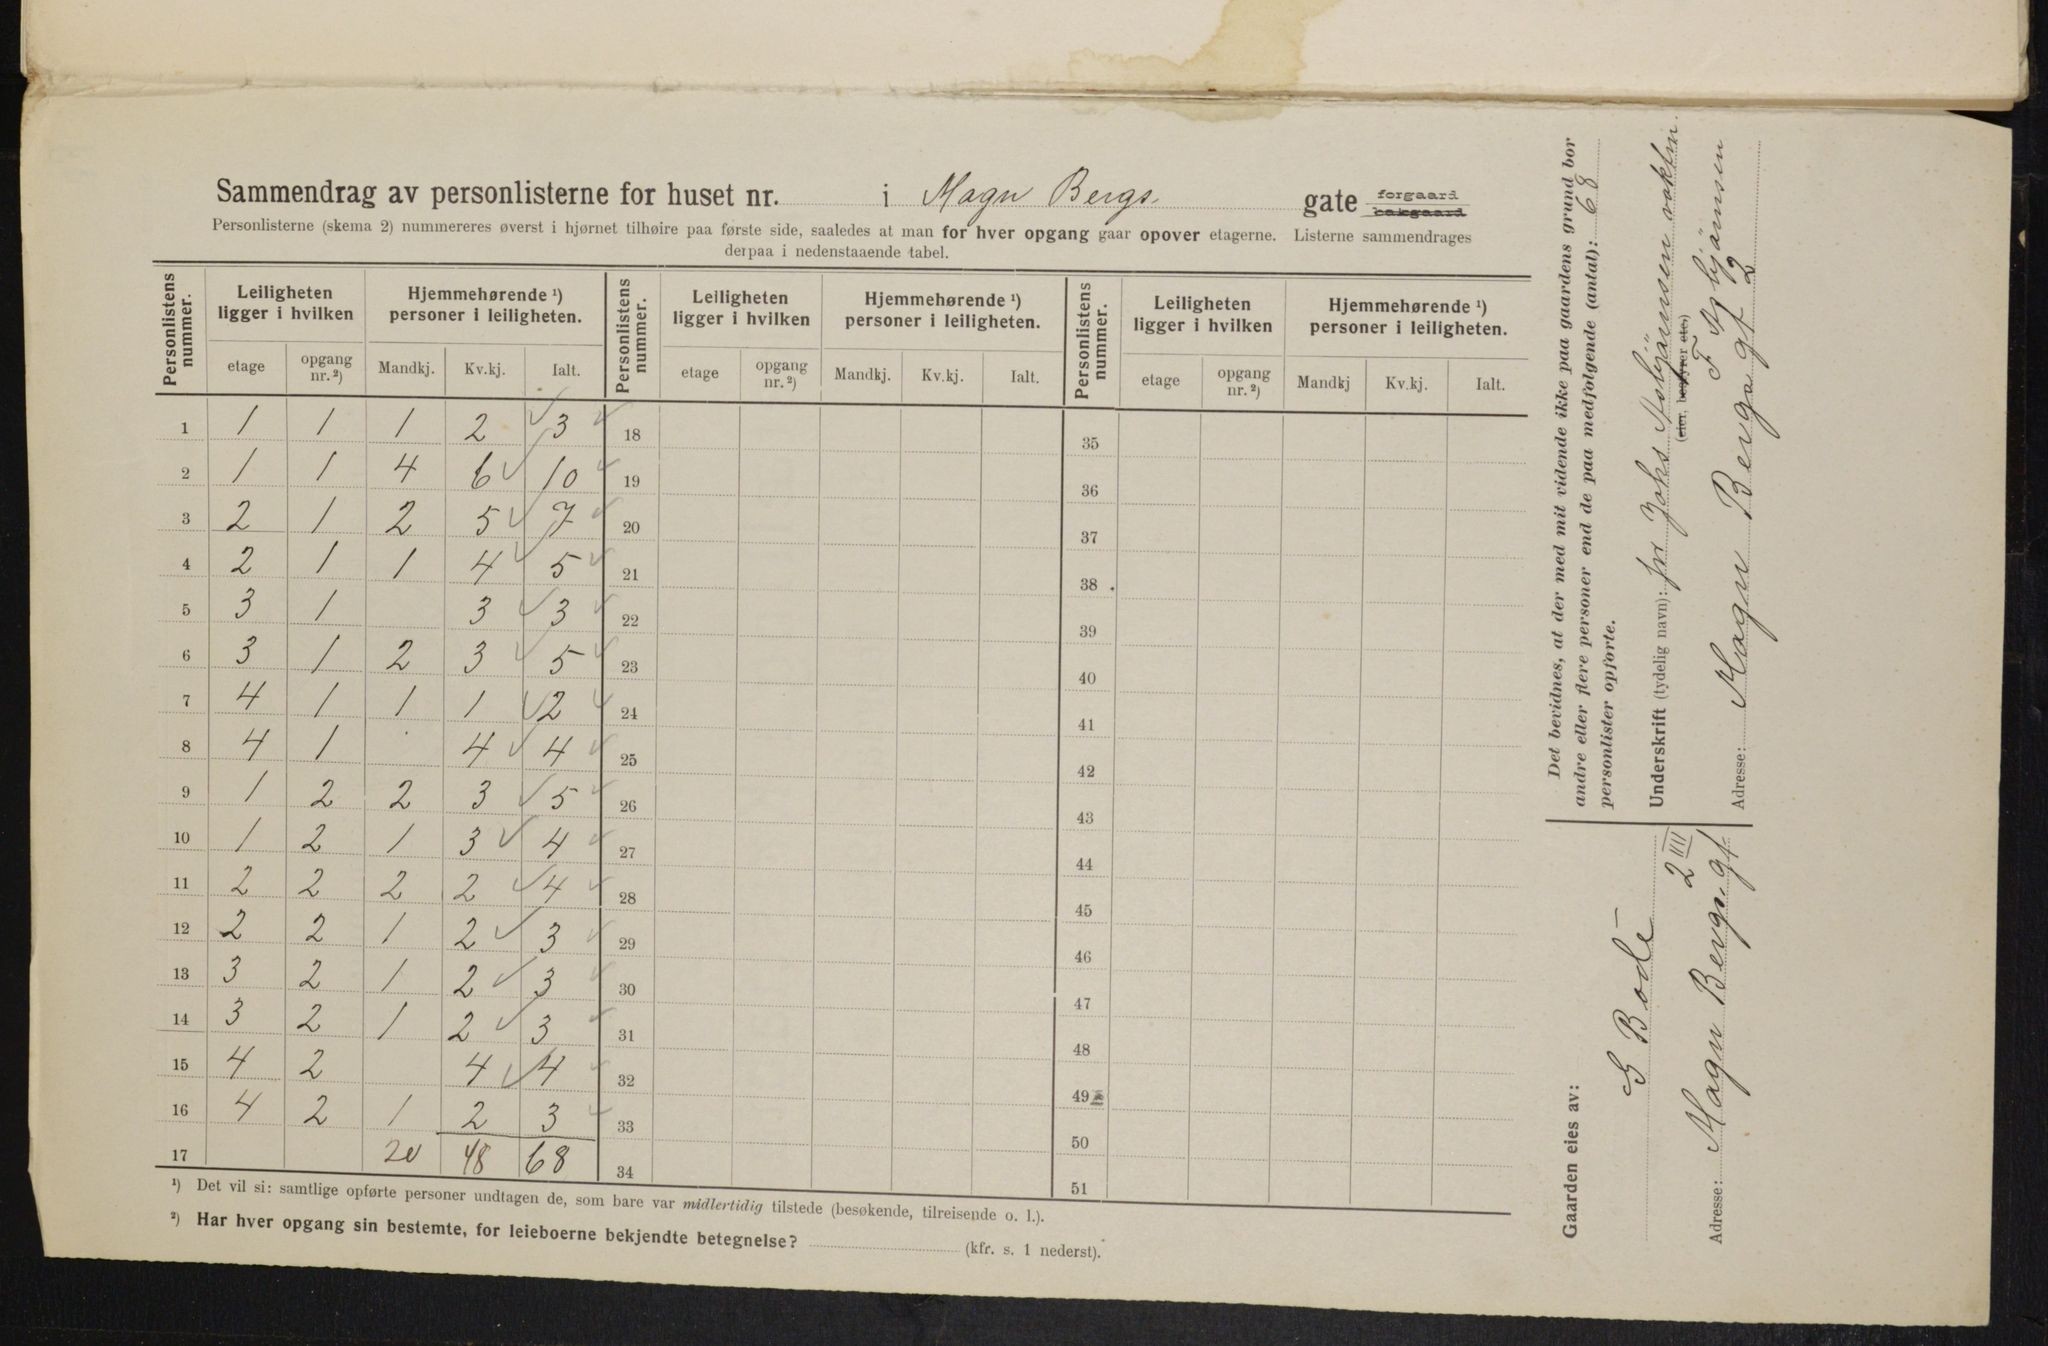 Sammendrag av personlisterne for huset nr. i Magn Bergs gate forgaard bakgaard
Personlisterne (skema 2) nummereres øverst i hjørnet tilhøire paa første side, saaledes at man for hver opgang gaar opover etagerne. Listerne sammendrages
derpaa i nedenstaaende tabel.
Personlistens nummer. Leiligheten ligger i hvilken Hjemmehørende ¹) personer i leiligheten. Personlistens nummer. Leiligheten ligger i hvilken Hjemmehørende ¹) personer i leiligheten. Personlistens nummer. Leiligheten ligger i hvilken Hjemmehørende ¹) personer i leiligheten.
etage opgang nr. ²) Mandkj. Kv.kj. Ialt. etage opgang nr. ²) Mandkj. Kv.kj. Ialt. etage opgang nr. ²) Mandkj Kv.kj. Ialt.
1 1 1 1 2 3 18 35
2 1 1 4 6 10 19 36
3 2 1 2 5 7 20 37
4 2 1 1 4 5 21 38
5 3 1 3 3 22 39
6 3 1 2 3 5 23 40
7 4 1 1 1 2 24 41
8 4 1 4 4 25 42
9 1 2 2 3 5 26 43
10 1 2 1 3 4 27 44
11 2 2 2 2 4 28 45
12 2 2 1 2 3 29 46
13 3 2 1 2 3 30 47
14 3 2 1 2 3 31 48
15 4 2 4 4 32 49
16 4 2 1 2 3 33 50
17 20 48 68 34 51
¹) Det vil si: samtlige opførte personer undtagen de, som bare var midlertidig tilstede (besøkende, tilreisende o. l.).
²) Har hver opgang sin bestemte, for leieboerne bekjendte betegnelse? (kfr. s. 1 nederst).
Det bevidnes, at der med mit vidende ikke paa gaardens grund bor
andre eller flere personer end de paa medfølgende (antal): 68
personlister opførte.
Underskrift (tydelig navn): pr Johs Asbjörnsen
(eier, bestyrer etc)
F Asbjörnsen
Adresse: Magn Bergs gt 2
Gaarden eies av:
G Bode
Adresse: Magn Bergs gt 2 IIII